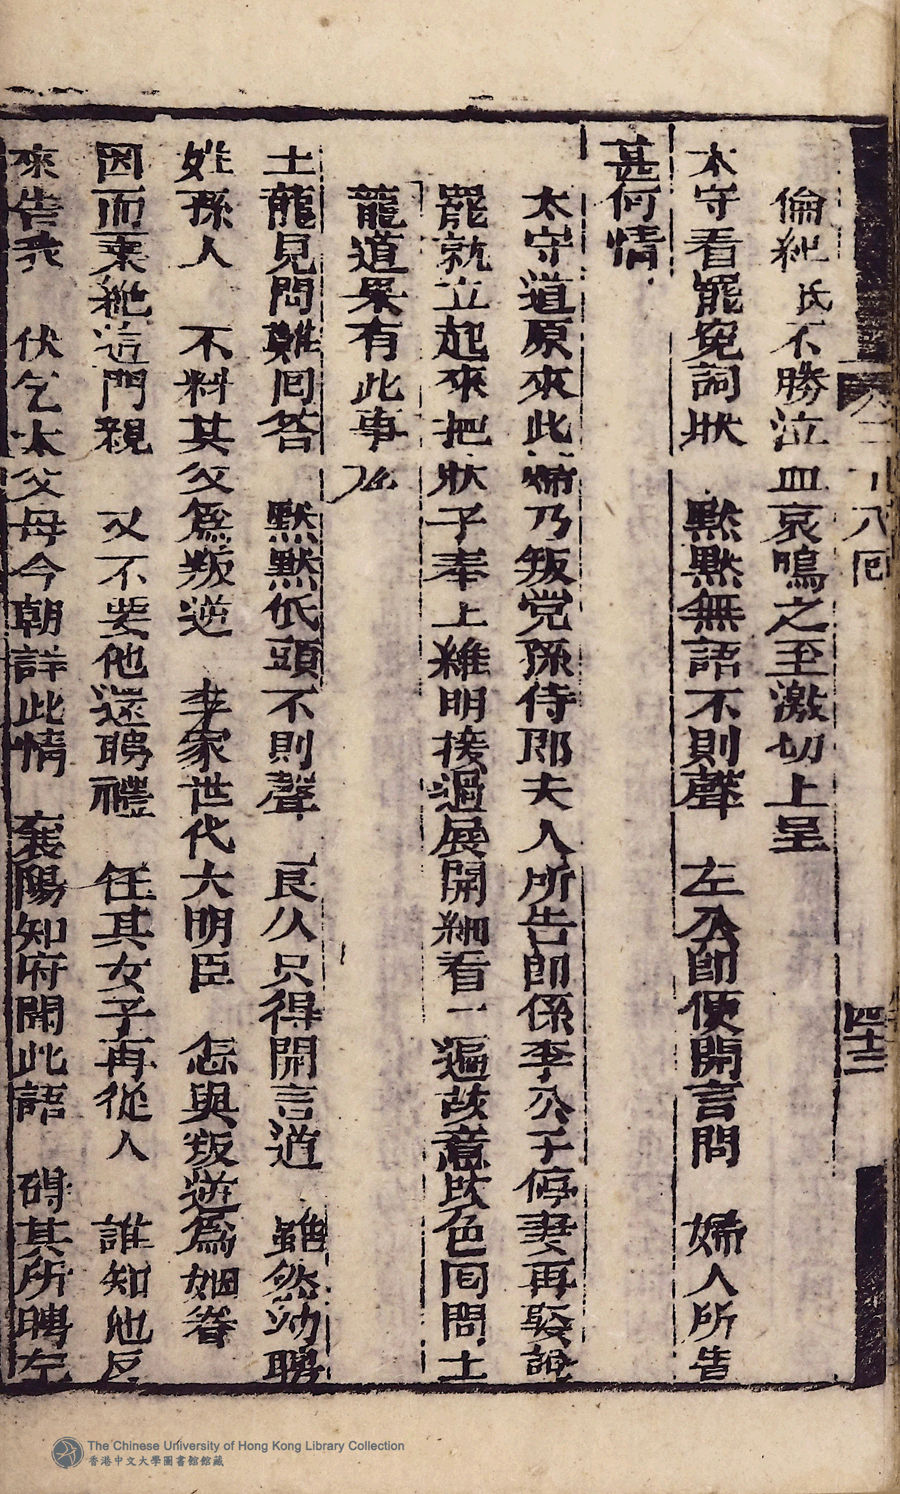 卷二十八囘
四十二
倫紀氏不勝泣血哀鳴之至激切上呈
太守看罷寃詞狀 默默無語不則聲 左公卽便開言問 婦人所告
甚何情
太守道原來此婦乃叛党孫侍郎夫人所告卽係李公子停妻再娶說
罷就立起來把狀子奉上維明接過展開細看一遍故意作色囘問土
龍道果有此事么
土龍見問難囘答 默默低頭不則聲 良久只得開言道 雖然幼聘
姓孫人 不料其父爲叛逆 李家世代大明臣 怎與叛逆爲姻眷
因而棄絶這門親 又不要他還聘禮 任其女子再從人 誰知他反
來告我 伏乞太父母今朝詳此情 襄陽知府聞此語 碍其所聘左
The Chinese University of Hong Kong Library Collection
香港中文大學圖書館館藏